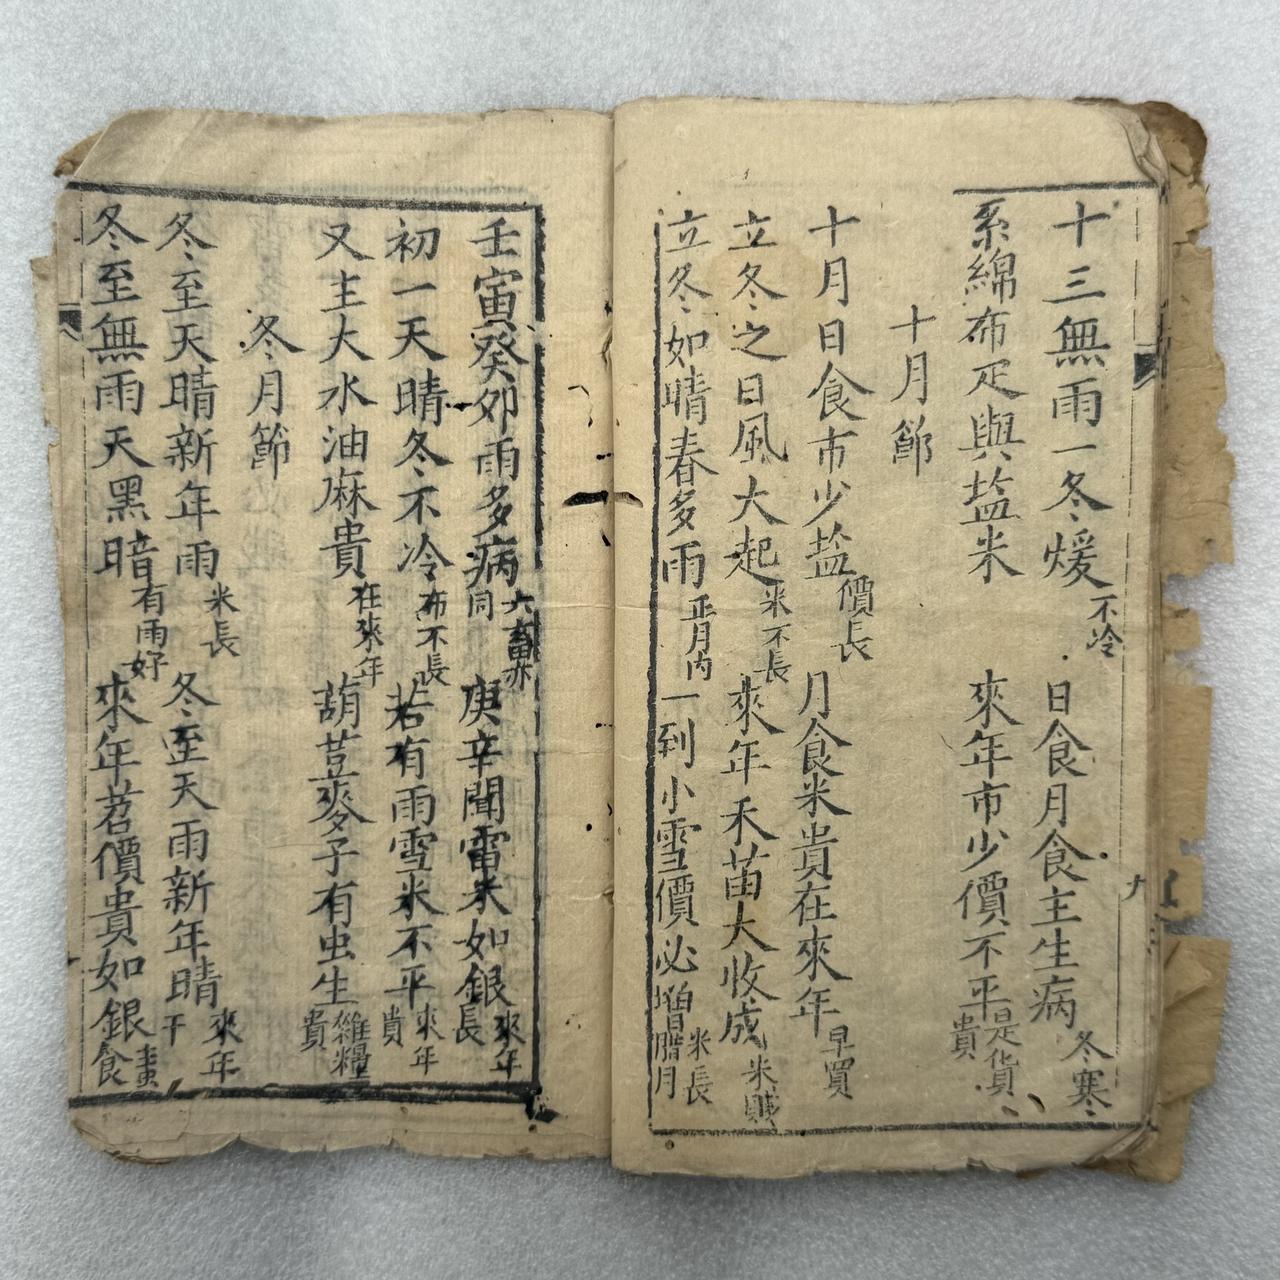 十三無雨一冬煖不冷 日食月食主生病冬寒
系綿布疋與盐米 來年市少價不平是貨貴
十月節
十月日食市少盐價長 月食米貴在來年早買
立冬之日風大起米不長 來年禾苗大收成米賤
立冬如晴春多雨正月内 一到小雪價必增米長腊月
九
壬寅癸卯雨多病六畜亦同 庚辛聞雷米如銀來年長
初一天晴冬不冷布不長 若有雨雪米不平來年貴
又主大水油麻貴在來年 葫荳麥子有虫生雜糧貴
冬月節
冬至天晴新年雨米長 冬至天雨新年晴來年干
冬至無雨天黑暗有雨好 來年苕價貴如銀虫食